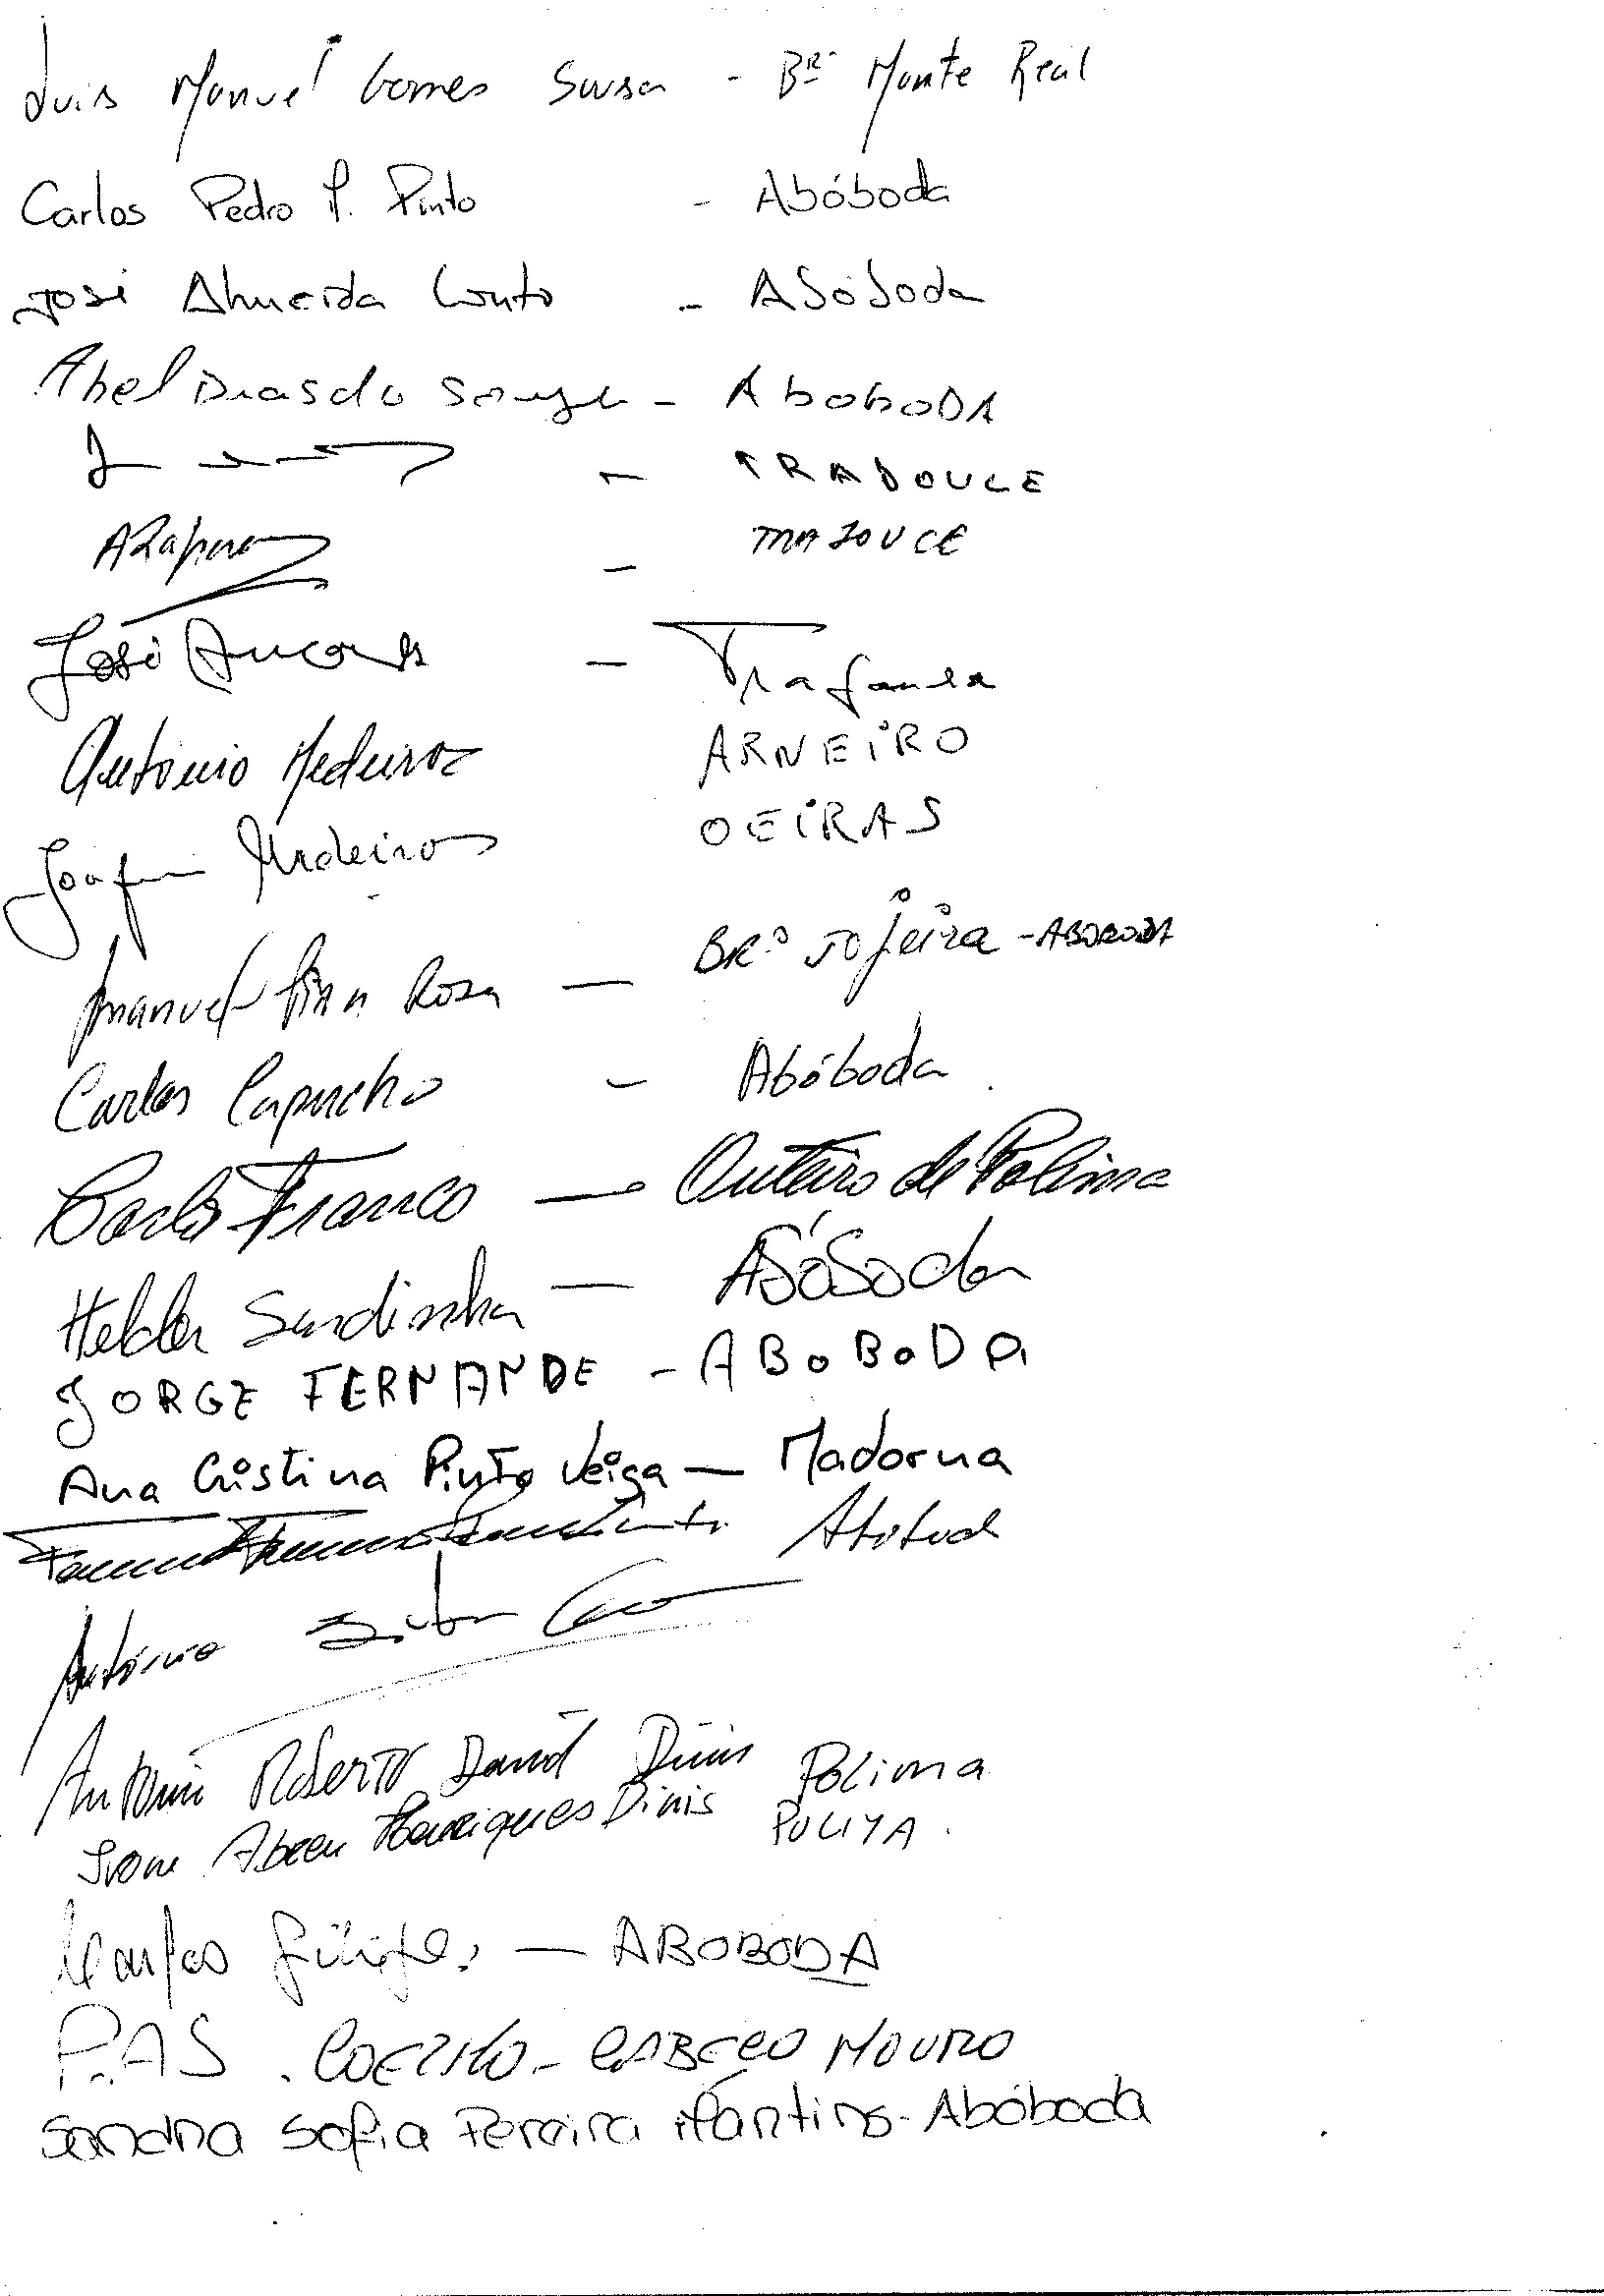 Luis Manuel Gomes Sousa - Br. Monte Real
Carlos Pedro P. Pinto - Abóboda
José Almeida Couto - Abóboda
Abel Dias da Souza - AboboDA
- TRADOUCE
-
José - Trafaria
António Medeiros ARNEIRO
Joaquim Medeiros OEIRAS
Manuel Rosa - BRº Jojeira - ABOBODA
Carlos Capucho - Abóboda
Carlos Franco - Outeiro de Polima
Helder Sardinha - Abóboda
JORGE FERNANDE - ABoBoDA
Ana Cristina Pinto Veiga - Madorna
António
António Roberto David Dinis Polima
Ivone Abreu Henriques Dinis
Carlos - ABOBODA
P.AS. COELHO - CABEÇO MOURO
Sandra Sofia Pereira Martins - Abóboda